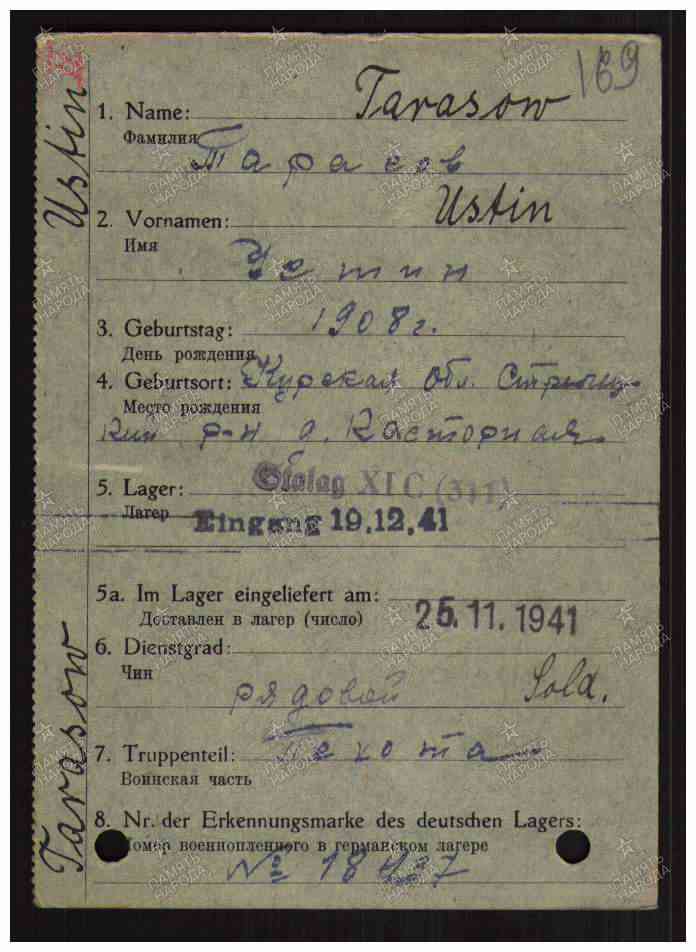 169
1. Name: Tarasow
Фамилия
Тарасов
2. Vornamen: Ustin
Имя
Устин
3. Geburtstag: 1908 г.
День рождения
4. Geburtsort: Курская Обл.
Место рождения
р-н Касторная
5. Lager: Stalag XI C (311)
Лагерь
Eingang 19.12.41
5a. Im Lager eingeliefert am:
Доставлен в лагер (число) 25.11.1941
6. Dienstgrad:
Чин
рядовой Sold.
7. Truppenteil: Пехота
Воинская часть
8. Nr. der Erkennungsmarke des deutschen Lagers:
Номер военнопленного в германском лагере
№ 18
Tarasow Ustin
ПАМЯТЬ НАРОДА